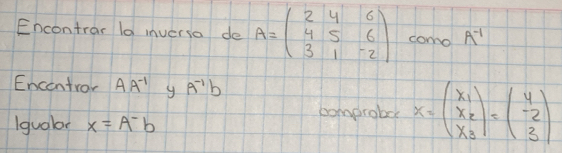 Encontrar la inversa de A = ( 2 4 6 / 4 5 6 / 3 1 -2 ) como A⁻¹
Encontrar AA⁻¹ y A⁻¹b
Igualar x = A⁻b
comprobar x = ( x₁ / x₂ / x₃ ) = ( 4 / -2 / 3 )